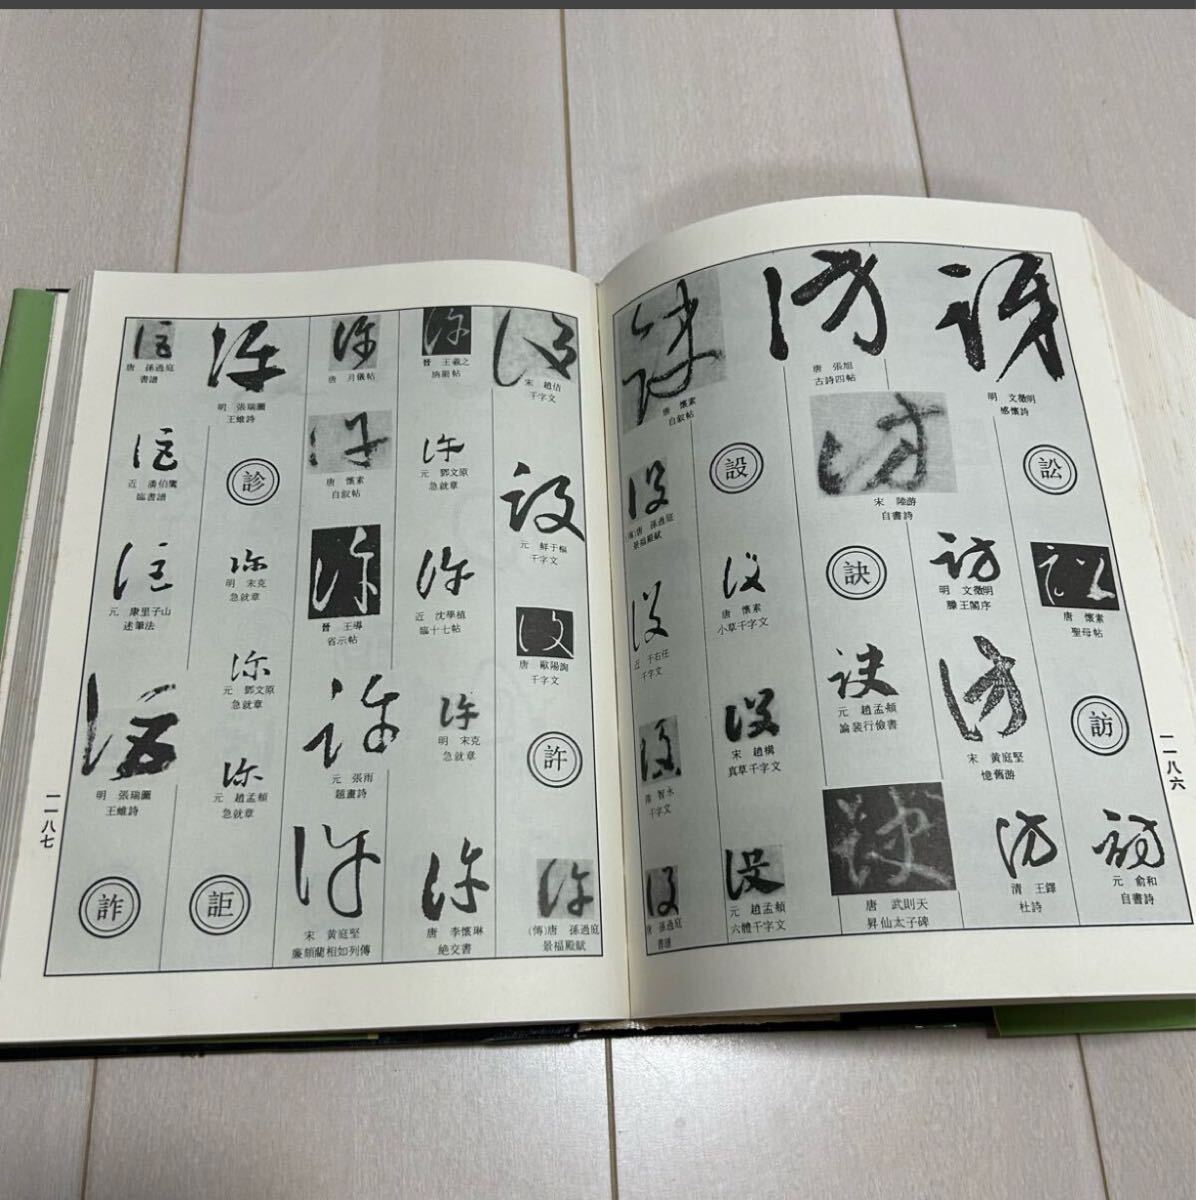 明 文徵明
感懷詩
訟
唐 懷素
聖母帖
訪
元 俞和
自書詩
明 文徵明
滕王閣序
宋 黃庭堅
憶舊游
清 王鐸
杜詩
唐 張旭
古詩四帖
宋 陸游
自書詩
訣
元 趙孟頫
論裝行儉書
唐 武則天
昇仙太子碑
設
唐 懷素
小草千字文
宋 趙構
真草千字文
元 趙孟頫
六體千字文
唐 懷素
自叙帖
(傳)唐 孫過庭
景福殿賦
近 于右任
千字文
隋 智永
千字文
唐 孫過庭
書譜
一一八六
宋 趙佶
千字文
元 鮮于樞
千字文
唐 歐陽詢
千字文
許
(傳)唐 孫過庭
景福殿賦
晉 王羲之
元 鄧文原
急就章
近 沈學植
臨十七帖
明 宋克
急就章
唐 李懷琳
絕交書
唐 月儀帖
唐 懷素
自叙帖
晉 王導
省示帖
元 張雨
題畫詩
宋 黃庭堅
廉頗藺相如列傳
明 張瑞圖
王維詩
診
明 宋克
急就章
元 鄧文原
急就章
元 趙孟頫
急就章
詎
唐 孫過庭
書譜
近 潘伯鷹
臨書譜
元 康里子山
述筆法
明 張瑞圖
王維詩
詐
一一八七